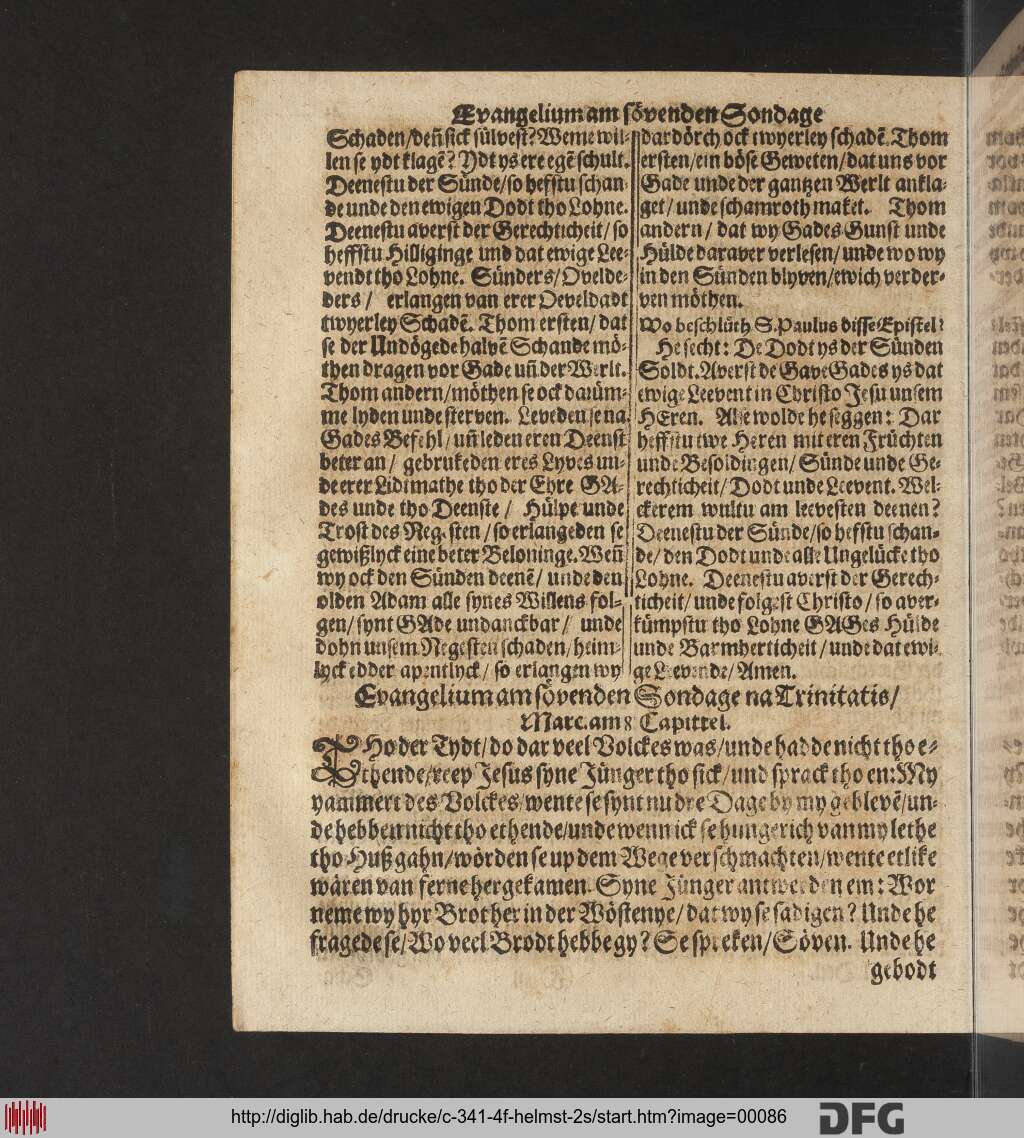 Evangelium am sövenden Sondage
Schaden/deñ sick sülvest? Weme wil-
len se ydt klagẽ? Ydt ys ere egẽ schult.
Deenestu der Sünde/so hefstu schan-
de unde den ewigen Dodt tho Lohne.
Deenestu averst der Gerechticheit/so
heffstu Hilliginge und dat ewige Lee-
vendt tho Lohne. Sünders/Ovelde-
ders/ erlangen van erer Oeveldadt
twyerley Schadẽ. Thom ersten/dat
se der Undögede halvẽ Schande mö-
then dragen vor Gade uñ der Werlt.
Thom andern/möthen se ock darüm-
me lyden unde sterven. Leveden se na
Gades Befehl/uñ leden eren Deenst
beter an/ gebrukeden eres Lyves un-
de erer Lidtmathe tho der Ehre GA-
des unde tho Deenste/ Hülpe unde
Trost des Negesten/so erlangeden se
gewißlyck eine beter Beloninge. Weñ
wy ock den Sünden deenẽ/ unde den
olden Adam alle synes Willens fol-
gen/synt GAde undanckbar/ unde
dohn unsem Negesten schaden/heim-
lyck edder apentlyck/so erlangen wy
dardörch ock twyerley schadẽ. Thom
ersten/ein böse Geweten/dat uns vor
Gade unde der gantzen Werlt ankla-
get/unde schamroth maket. Thom
andern/dat wy Gades Gunst unde
Hülde daraver verlesen/unde wo wy
in den Sünden blyven/ewich verder-
ven möthen.
Wo beschlüth S. Paulus disse Epistel?
He secht: De Dodt ys der Sünden
Soldt. Averst de Gave Gades ys dat
ewige Leevent in Christo Jesu unsem
HEren. Alse wolde he seggen: Dar
heffstu twe Heren mit eren Früchten
unde Besoldingen/Sünde unde Ge-
rechticheit/Dodt unde Leevent. Wel-
ckerem wultu am leevesten deenen?
Deenestu der Sünde/so hefstu schan-
de/den Dodt unde alle Ungelücke tho
Lohne. Deenestu averst der Gerech-
ticheit/unde folgest Christo/so aver-
kümpstu tho Lohne GAGes Hülde
unde Barmherticheit/unde dat ewi-
ge Leevende/Amen.
Evangelium am sövenden Sondage na Trinitatis/
Marc. am 8 Capittel.
THo der Tydt/do dar veel Volckes was/unde hadde nicht tho e-
thende/reep Jesus syne Jünger tho sick/und sprack tho en: My
yammert des Volckes/wente se synt nu dre Dage by my geblevẽ/un-
de hebben nicht tho ethende/unde wenn ick se hungerich van my lethe
tho Huß gahn/wörden se up dem Wege verschmachten/wente etlike
wären van ferne hergekamen. Syne Jünger antwerden em: Wor
neme wy hyr Brot her in der Wöstenye/dat wy se sadigen? Unde he
fragede se/Wo veel Brodt hebbe gy? Se spreken/Söven. Unde he
gebodt
http://diglib.hab.de/drucke/c-341-4f-helmst-2s/start.htm?image=00086
DFG